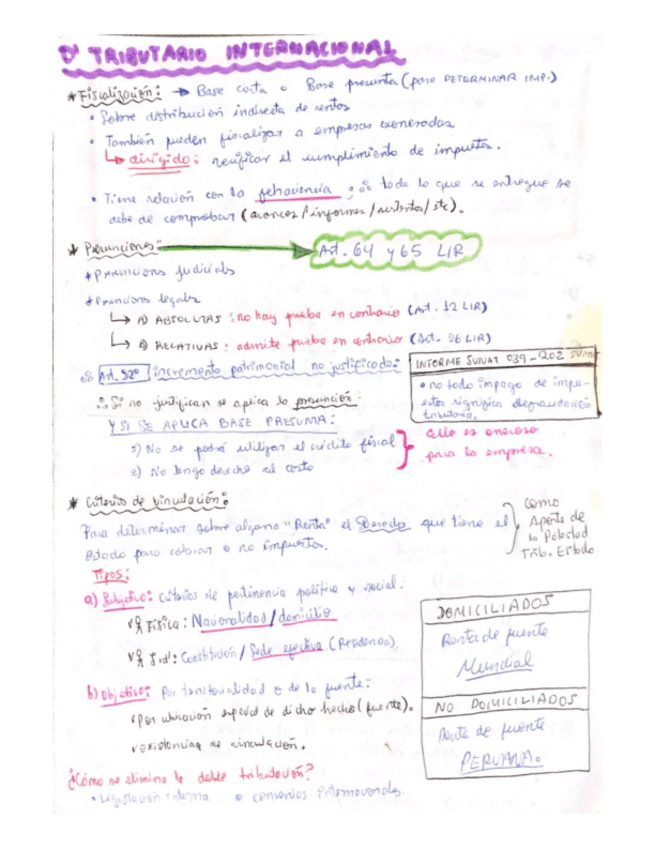 D° TRIBUTARIO INTERNACIONAL
* Fiscalización: → Base cierta o Base presunta (para DETERMINAR IMP.)
• Sobre distribución indirecta de rentas
• También pueden fiscalizar a empresas exoneradas
↳ dirigido: verificar el cumplimiento de impuestos.
• Tiene relación con la fehaciencia, ∴ todo lo que se entregue se
debe de comprobar (avances/informes/sustentos/etc).
* Presunciones: → Art. 64 y 65 LIR
* presunciones judiciales
* Presunciones legales
↳ A) ABSOLUTAS: no hay prueba en contrario (Art. 12 LIR)
↳ B) RELATIVAS: admite prueba en contrario (Art. 26 LIR)
∴ Art. 52° incremento patrimonial no justificado:
INFORME SUNAT 039-202 SUNAT
• no todo impago de impu-
estos significa defraudación
tributaria.
∴ Si no justifican se aplica la presunción:
Y SI SE APLICA BASE PRESUNTA:
1) No se podrá utilizar el crédito fiscal
2) No tengo derecho al costo
} Ello es oneroso
para la empresa.
* Criterios de vinculación:
Para determinar sobre alguna "Renta" el Derecho que tiene el
Estado para cobrar o no impuestos.
} como
Aporte de
la Potestad
Trib. Estado
Tipos:
a) Subjetivo: Criterios de pertinencia política y social.
Física: Nacionalidad/domicilio
Jrd: Constitución/Sede efectiva (Residencia)
b) Objetivo: Por territorialidad o de la fuente:
Por ubicación espacial de dicho hecho (fuente).
existencia de vinculación.
DOMICILIADOS
Renta de fuente
Mundial
NO DOMICILIADOS
Renta de fuente
PERUANA.
¿Cómo se elimina la doble tributación?
• Legislación interna • convenios Internacionales